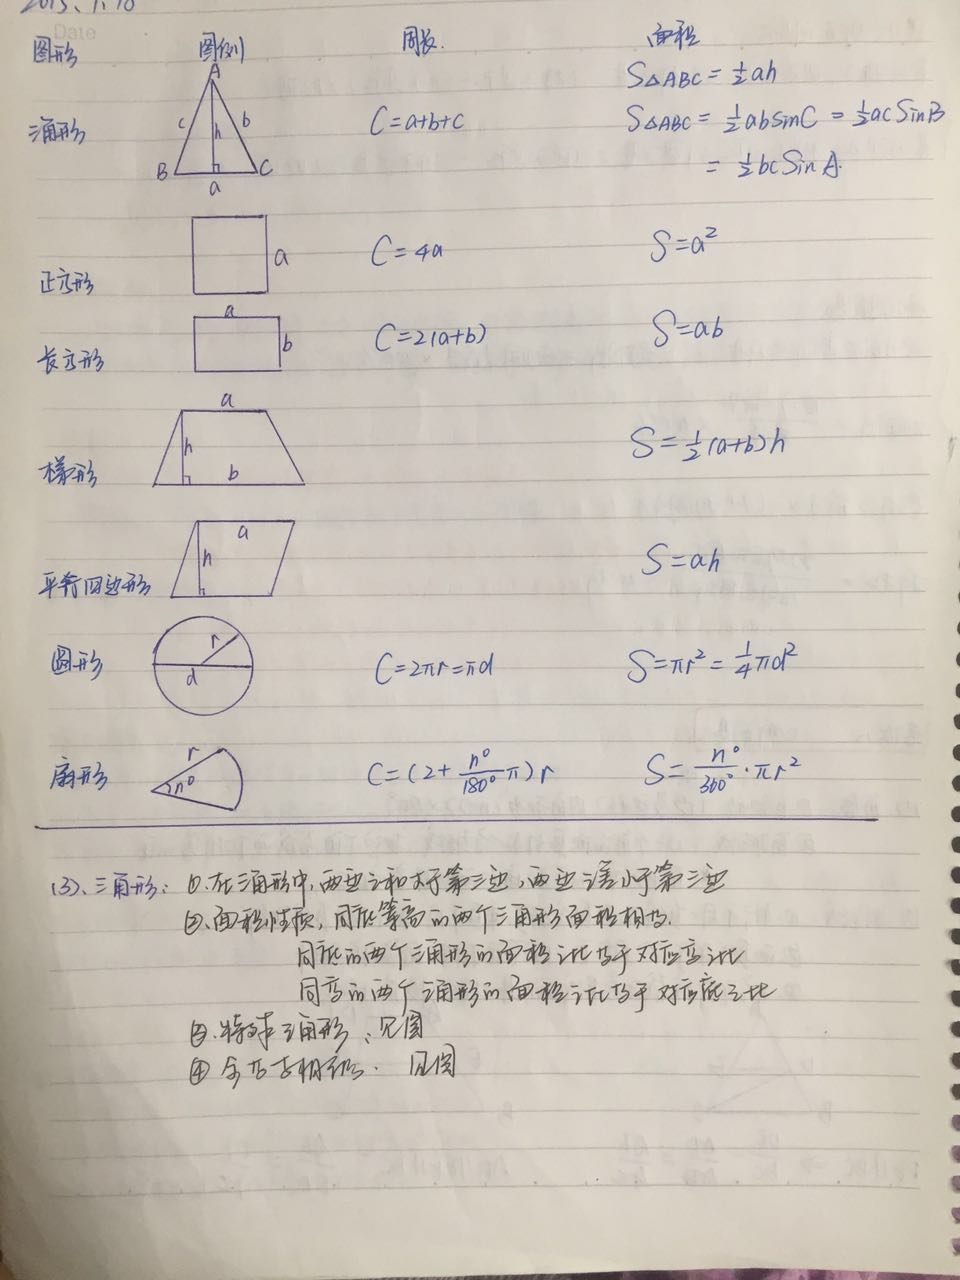 Date
图形 图例 周长 面积
三角形 A B C a b c h C=a+b+c S△ABC=½ah
S△ABC=½absinC=½acSinB
=½bcSinA.
正方形 a C=4a S=a²
长方形 a b C=2(a+b) S=ab
梯形 a h b S=½(a+b)h
平行四边形 a h S=ah
圆形 r d C=2πr=πd S=πr²=¼πd²
扇形 r n° C=(2+n°/180°π)r S=n°/360°·πr²
(3)、三角形: ①.在三角形中,两边之和大于第三边,两边之差小于第三边
②.面积性质,同底等高的两个三角形面积相等.
同底的两个三角形的面积之比等于对应高之比
同高的两个三角形的面积之比等于对应底之比
③.特殊三角形、见图
④全等与相似. 见图